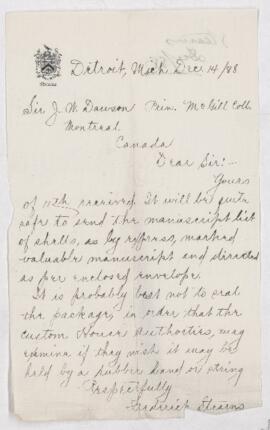 Stearns
Detroit, Mich. Dec. 14/88
Sir J. W. Dawson Prin. McGill Coll.
Montreal
Canada
Dear Sir:—
Yours
of 12th received It will be quite
safe to send the manuscript list
of shells, as by express, marked
valuable manuscript and directed
as per enclosed envelope.
It is probably best not to seal
the package, in order that the
custom House authorties, may
examine if they wish it may be
held by a rubber band or string
Respectfully
Frederick Stearns